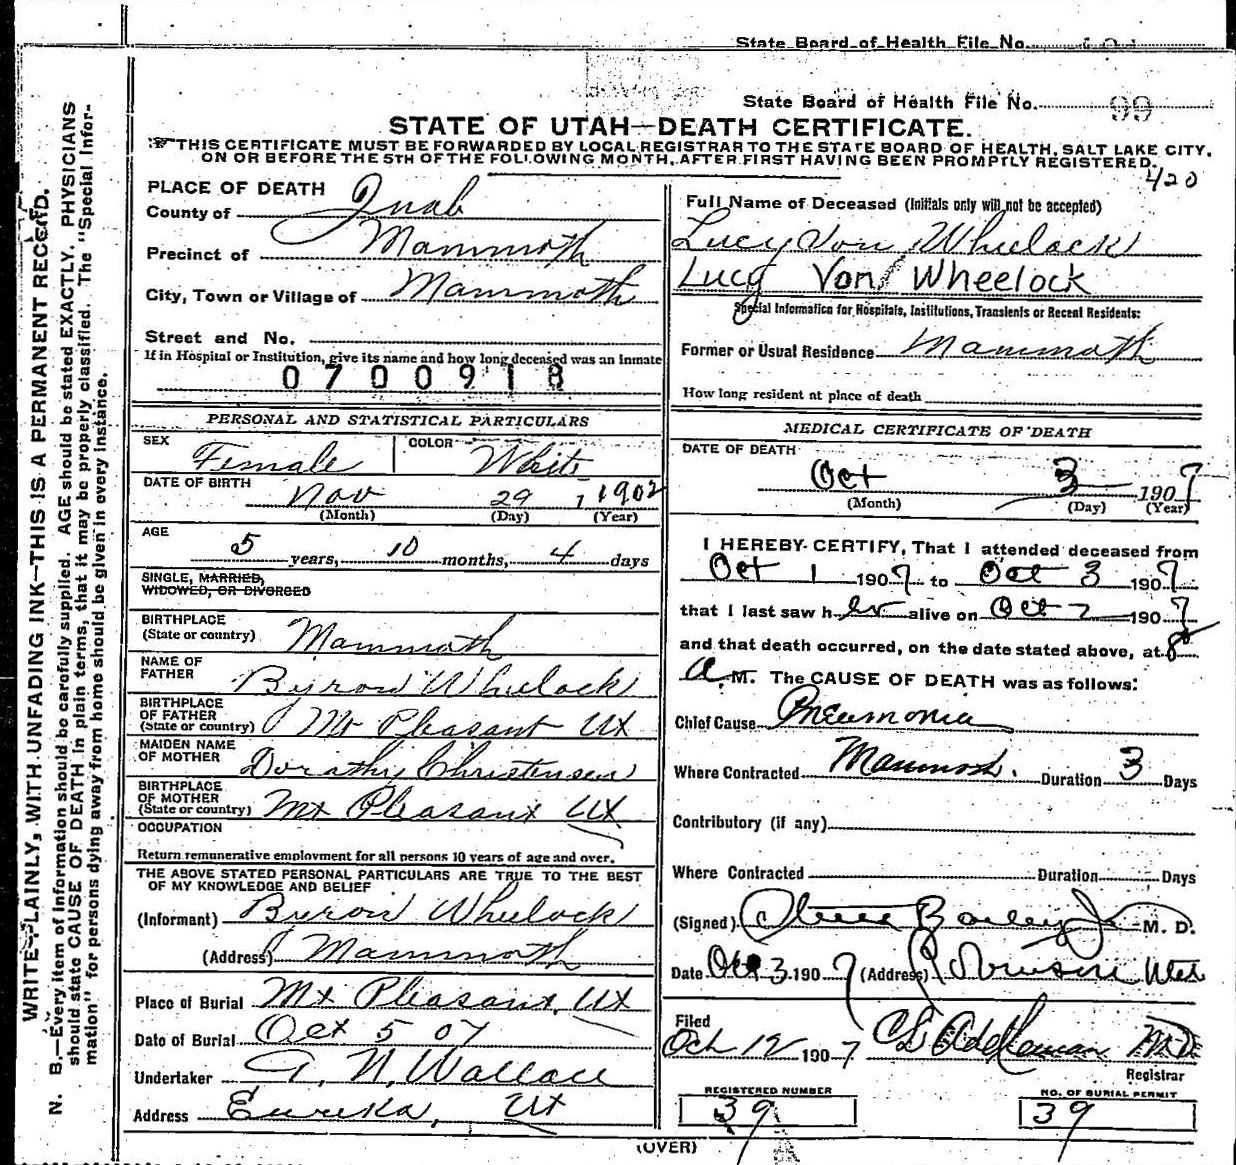 State Board of Health File No.
State Board of Health File No. 99
STATE OF UTAH—DEATH CERTIFICATE.
THIS CERTIFICATE MUST BE FORWARDED BY LOCAL REGISTRAR TO THE STATE BOARD OF HEALTH, SALT LAKE CITY,
ON OR BEFORE THE 5TH OF THE FOLLOWING MONTH, AFTER FIRST HAVING BEEN PROMPTLY REGISTERED.
420
WRITE PLAINLY, WITH UNFADING INK—THIS IS A PERMANENT RECORD.
N. B.—Every item of information should be carefully supplied. AGE should be stated EXACTLY. PHYSICIANS
should state CAUSE OF DEATH in plain terms, that it may be properly classified. The "Special Infor-
mation" for persons dying away from home should be given in every instance.
PLACE OF DEATH
County of Juab
Precinct of Mammoth
City, Town or Village of Mammoth
Street and No.
If in Hospital or Institution, give its name and how long deceased was an inmate
0700918
PERSONAL AND STATISTICAL PARTICULARS
SEX Female COLOR White
DATE OF BIRTH Nov 29 1902
(Month) (Day) (Year)
AGE
5 years, 10 months, 4 days
SINGLE, MARRIED,
WIDOWED, OR DIVORCED
BIRTHPLACE
(State or country) Mammoth
NAME OF
FATHER Byron Wheelock
BIRTHPLACE
OF FATHER
(State or country) Mt Pleasant Ut
MAIDEN NAME
OF MOTHER Dorathy Christensen
BIRTHPLACE
OF MOTHER
(State or country) Mt Pleasant Ut
OCCUPATION
Return remunerative employment for all persons 10 years of age and over.
THE ABOVE STATED PERSONAL PARTICULARS ARE TRUE TO THE BEST
OF MY KNOWLEDGE AND BELIEF
(Informant) Byron Wheelock
(Address) Mammoth
Place of Burial Mt Pleasant, Ut
Date of Burial Oct 5 07
Undertaker A. N. Wallace
Address Eureka, Ut
Full Name of Deceased (Initials only will not be accepted)
Lucy Von Wheelock
Lucy Von Wheelock
Special Information for Hospitals, Institutions, Transients or Recent Residents:
Former or Usual Residence Mammoth
How long resident at place of death
MEDICAL CERTIFICATE OF DEATH
DATE OF DEATH
Oct 3 1907
(Month) (Day) (Year)
I HEREBY CERTIFY, That I attended deceased from
Oct 1 1907 to Oct 3 1907
that I last saw her alive on Oct 2 1907
and that death occurred, on the date stated above, at 8
A. M. The CAUSE OF DEATH was as follows:
Chief Cause Pneumonia
Where Contracted Mammoth. Duration 3 Days
Contributory (if any)
Where Contracted Duration Days
(Signed) Steele Bailey Jr M. D.
Date Oct 3 1907 (Address) Robinson Utah
Filed
Oct 12 1907 M.D.
Registrar
REGISTERED NUMBER
39
NO. OF BURIAL PERMIT
39
(OVER)